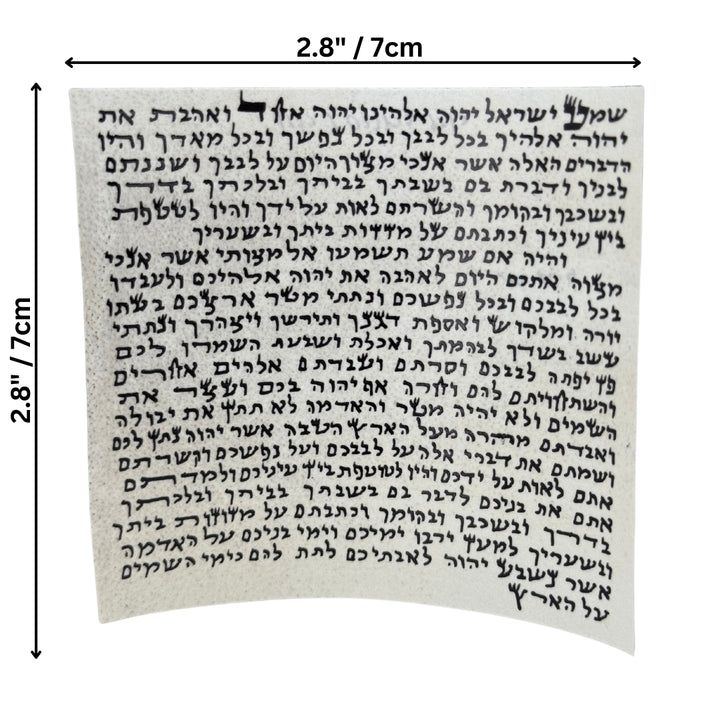 2.8" / 7cm
2.8" / 7cm
שמע ישראל יהוה אלהינו יהוה אחד ואהבת את
יהוה אלהיך בכל לבבך ובכל נפשך ובכל מאדך והיו
הדברים האלה אשר אנכי מצוך היום על לבבך ושננתם
לבניך ודברת בם בשבתך בביתך ובלכתך בדרך
ובשכבך ובקומך וקשרתם לאות על ידך והיו לטטפת
בין עיניך וכתבתם על מזזות ביתך ובשעריך
והיה אם שמע תשמעו אל מצותי אשר אנכי
מצוה אתכם היום לאהבה את יהוה אלהיכם ולעבדו
בכל לבבכם ובכל נפשכם ונתתי מטר ארצכם בעתו
יורה ומלקוש ואספת דגנך ותירשך ויצהרך ונתתי
עשב בשדך לבהמתך ואכלת ושבעת השמרו לכם
פן יפתה לבבכם וסרתם ועבדתם אלהים אחרים
והשתחויתם להם וחרה אף יהוה בכם ועצר את
השמים ולא יהיה מטר והאדמה לא תתן את יבולה
ואבדתם מהרה מעל הארץ הטבה אשר יהוה נתן לכם
ושמתם את דברי אלה על לבבכם ועל נפשכם וקשרתם
אתם לאות על ידכם והיו לטוטפת בין עיניכם ולמדתם
אתם את בניכם לדבר בם בשבתך בביתך ובלכתך
בדרך ובשכבך ובקומך וכתבתם על מזוזות ביתך
ובשעריך למען ירבו ימיכם וימי בניכם על האדמה
אשר נשבע יהוה לאבתיכם לתת להם כימי השמים
על הארץ